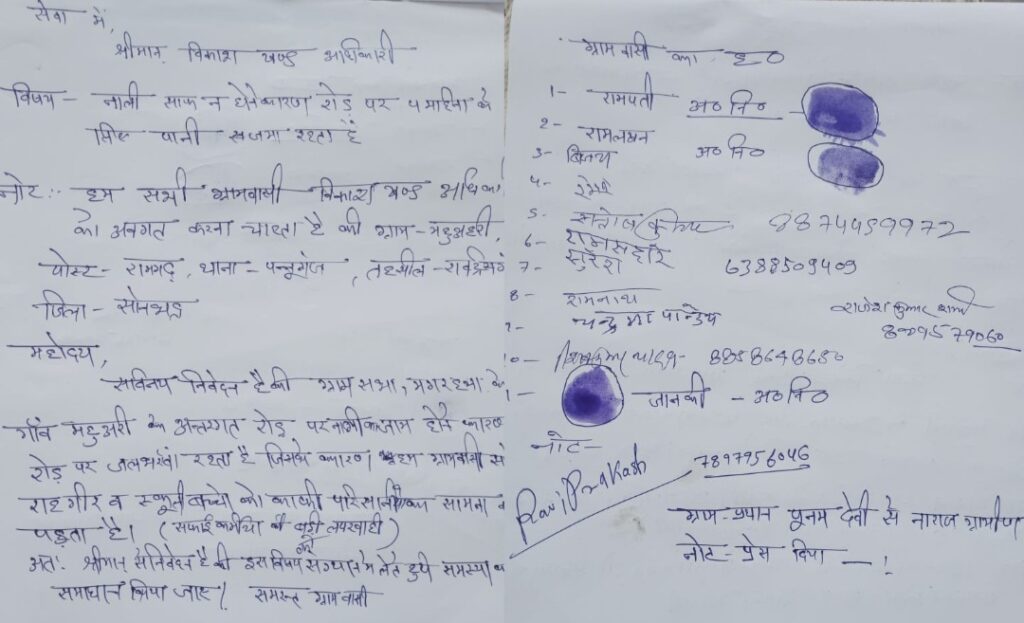 सेवा में,
श्रीमान् विकाश खण्ड अधिकारी
विषय - नाली साफ न होने के कारण रोड़ पर 4 महिना के
पानी जमा रहता है
नोट :- हम सभी ग्रामवासी विकाश खण्ड अधिका
को अवगत करना चाहता है की ग्राम - महुअरी,
पोस्ट - रामगढ़, थाना - पन्नूगंज, तहसील -
जिला - सोनभद्र
महोदय,
सविनय निवेदन है की ग्राम सभा, मगरहथा के
गाँव महुअरी के अन्तरगत रोड़ पर नाली का जाम होने कारण
रोड़ पर जलभराव रहता है जिसके कारण हम ग्रामवासी
राहगीर व स्कूली बच्चे को काफी परेसानी का सामना
पड़ता है। (सफाई कर्मचा की बड़ी लापरवाही)
अतः श्रीमान से निवेदन है की इस विषय को संज्ञान मे लेते हुये समस्या
समाधान किया जाए। समस्त ग्रामवासी
ग्रामवासी का ह०
1- रामपती अ० नि०
2- रामलखन
3- विजय अ० नि०
4- रमेश
5- सन्तोष कुमार 8874459972
6- रामसहारे
7- सुरेश 6388509409
8- रामनाथ राजेश कुमार शर्मा
9- चन्द्रमा पाण्डेय 8009579060
10- 8858648680
1- जानकी - अ० नि०
नोट-
Ravi Prakash 7897956046
ग्राम-प्रधान पूनम देवी से नाराज ग्रामीण
नोट - प्रेस दिया —!